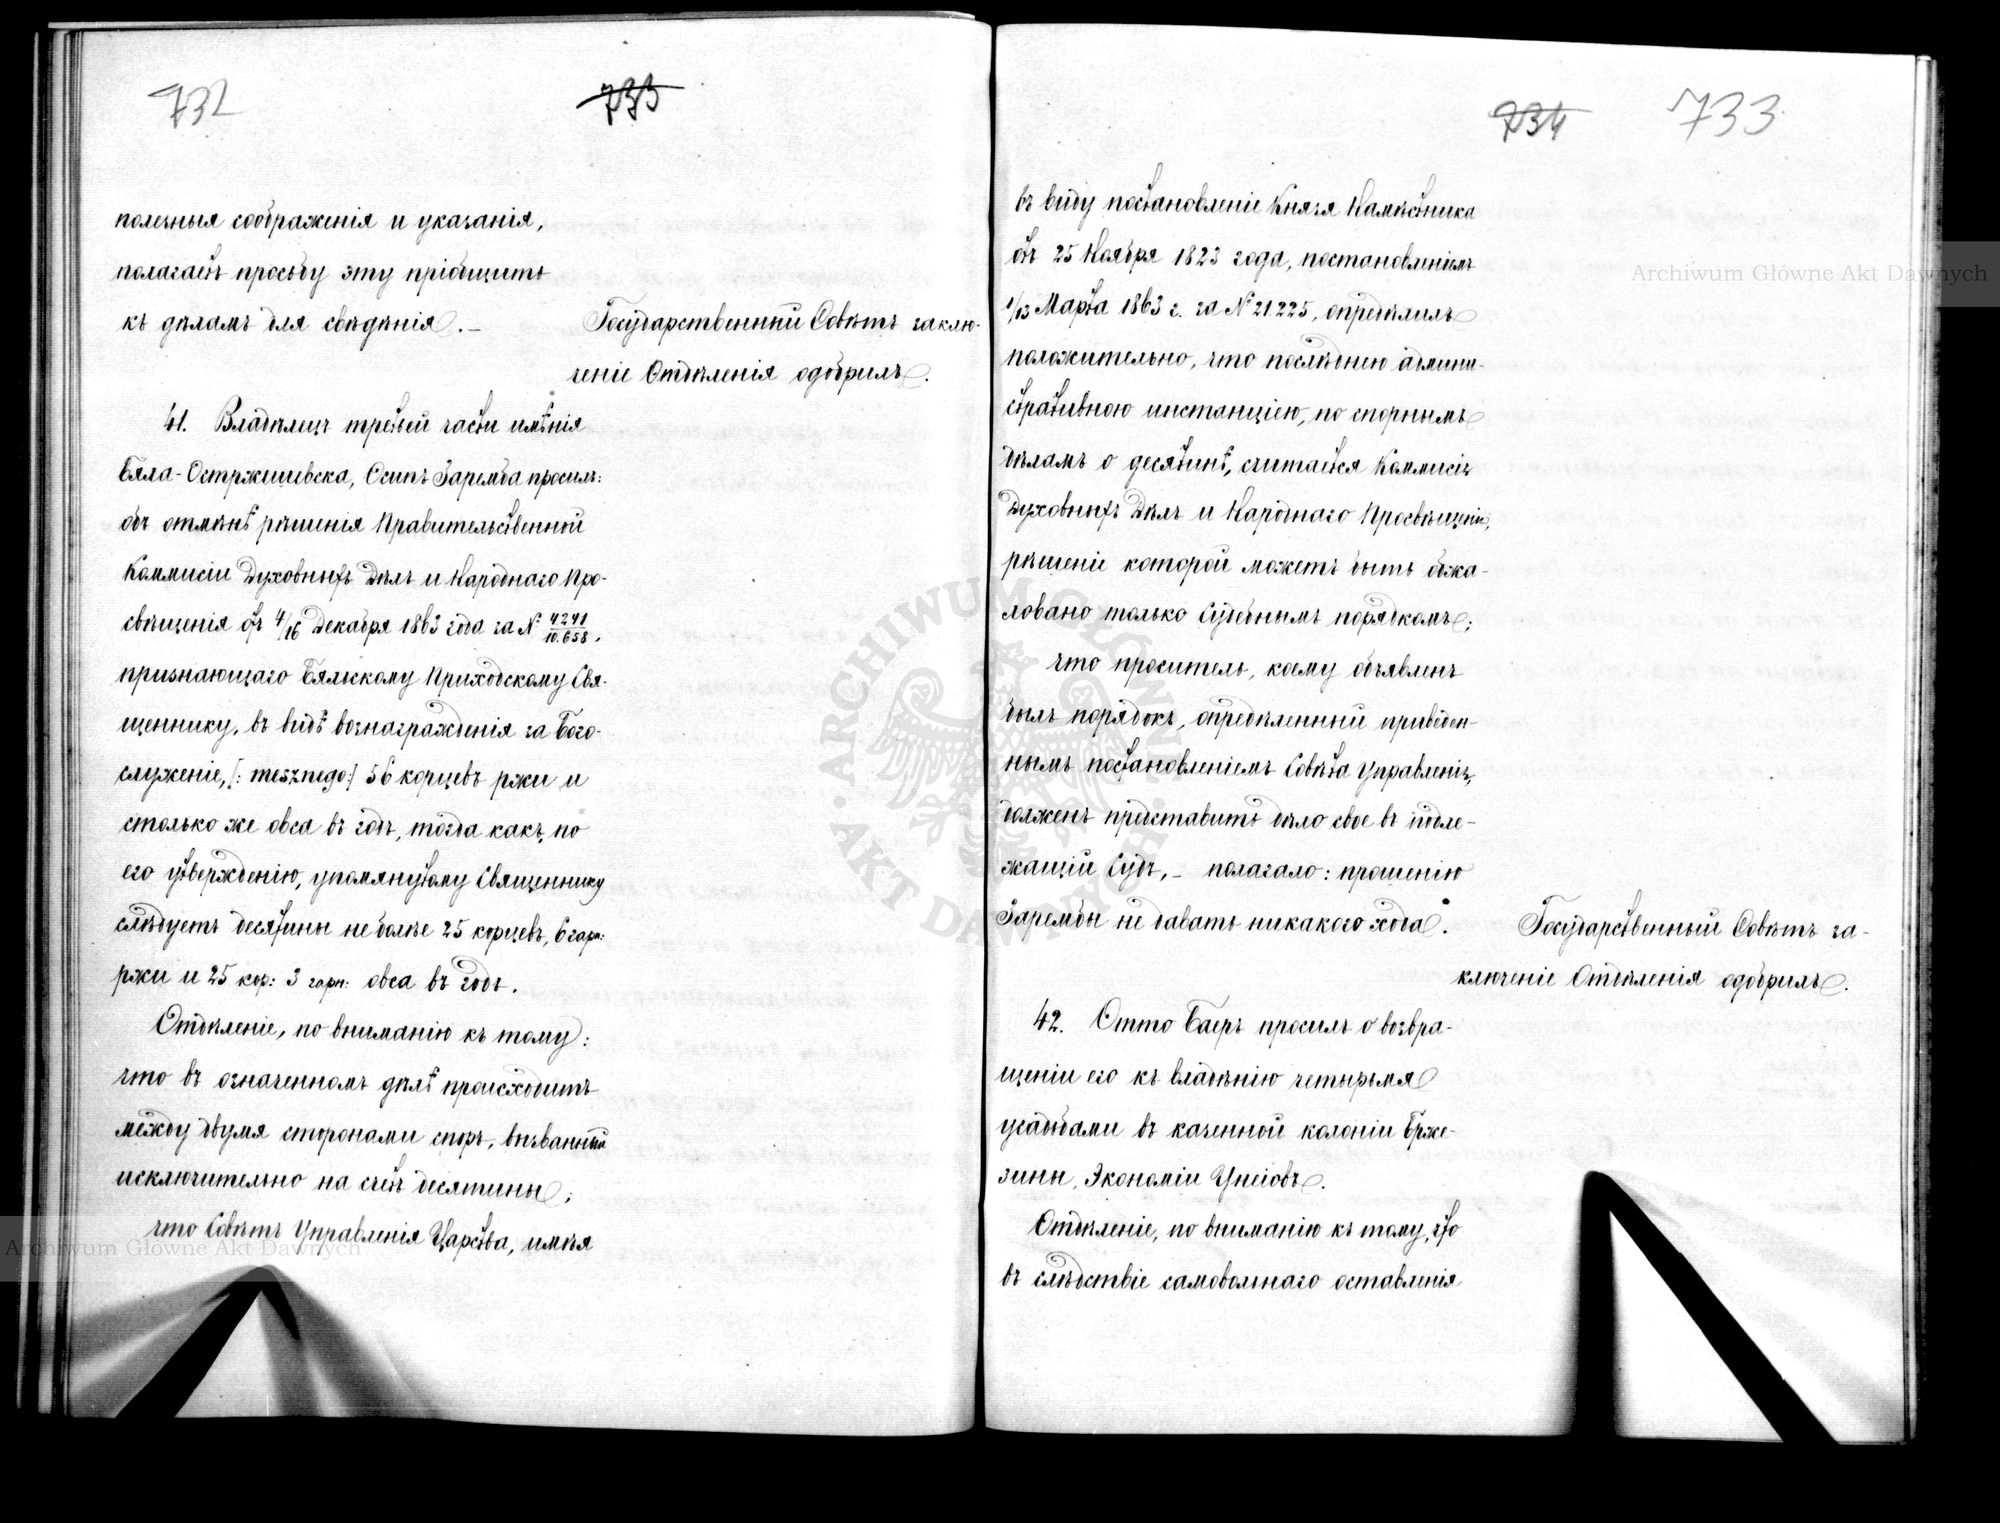 732
733
полезныя соображенія и указанія,
полагаетъ просьбу эту пріобщить
къ дѣламъ для свѣдѣнія. –
Государственный Совѣтъ заклю-
ченіе Отдѣленія одобрилъ.
41. Владѣлецъ третьей части имѣнія
Бяла-Остржешевска, Осипъ Заремба просилъ:
объ отмѣнѣ рѣшенія Правительственной
Коммисіи Духовныхъ Дѣлъ и Народнаго Про-
свѣщенія отъ 4/16 Декабря 1863 года за № 4241/10.658,
признающаго Бяльскому Приходскому Свя-
щеннику, въ видѣ вознагражденія за Бого-
служеніе, [: mesznego :] 56 корцевъ ржи и
столько же овса въ годъ, тогда какъ, по
его утвержденію, упомянутому Священнику
слѣдуетъ десятины не болѣе 25 корцевъ, 6 гарн:
ржи и 25 кор: 3 гарн: овса въ годъ.
Отдѣленіе, по вниманію къ тому:
что въ означенномъ дѣлѣ происходитъ
между двумя сторонами споръ, вызванный
исключительно на счетъ десятины;
что Совѣтъ Управленія Царства, имѣя
734
733
въ виду постановленіе Князя Намѣстника
отъ 25 Ноября 1823 года, постановленіемъ
1/13 Марта 1863 г. за № 21225, опредѣлилъ
положительно, что послѣднею админи-
стративною инстанціею, по спорнымъ
дѣламъ о десятинѣ, считается Коммисія
Духовныхъ Дѣлъ и Народнаго Просвѣщенія,
рѣшеніе которой можетъ быть обжа-
ловано только Судебнымъ порядкомъ;
что проситель, коему объявленъ
былъ порядокъ, опредѣленный приведен-
нымъ постановленіемъ Совѣта Управленія,
долженъ представить дѣло свое въ подле-
жащій Судъ, – полагало: прошенію
Зарембы не давать никакого хода.
Государственный Совѣтъ за-
ключеніе Отдѣленія одобрилъ.
42. Отто Баеръ просилъ о возвра-
щеніи его къ владѣнію четырьмя
усадьбами въ казенной колоніи Брже-
зины, Экономіи Унеіовъ.
Отдѣленіе, по вниманію къ тому, что
въ слѣдствіе самовольнаго оставленія
Archiwum Główne Akt Dawnych
Archiwum Główne Akt Dawnych
ARCHIWUM GŁÓWNE · AKT DAWNYCH ·